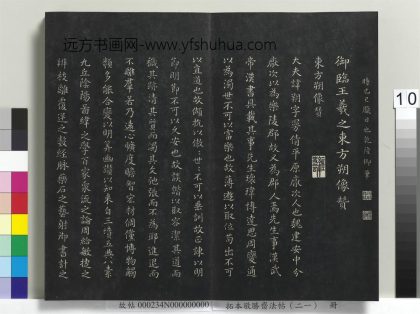 远方书画网-www.yfshuhua.com
御臨王羲之東方朔像贊
東方朔像贊
大夫諱朔字曼倩平原厭次人也魏建安中分
厭次以為樂陵郡故又為郡人焉先生事漢武
帝漢書具載其事先生瓌瑋博達思周變通
以為濁世不可以富樂也故薄遊以取位苟出不可
以直道也故頡頏以傲世世不可以垂訓故正諫以明
節明節不可以久安也故詼諧以取容潔其道而
穢其跡清其質而濁其文弛張而不為邪進退而
不離羣若乃遠心曠度贍智宏材倜儻博物觸
類多能合變以明筭幽贊以知來自三墳五典八素
九丘陰陽圖緯之學百家衆流之論周給敏捷之
辨枝離覆逆之數經脉藥石之藝射御書計之
10
故帖 000234N000000000
拓本敬勝齋法帖（二一） 冊